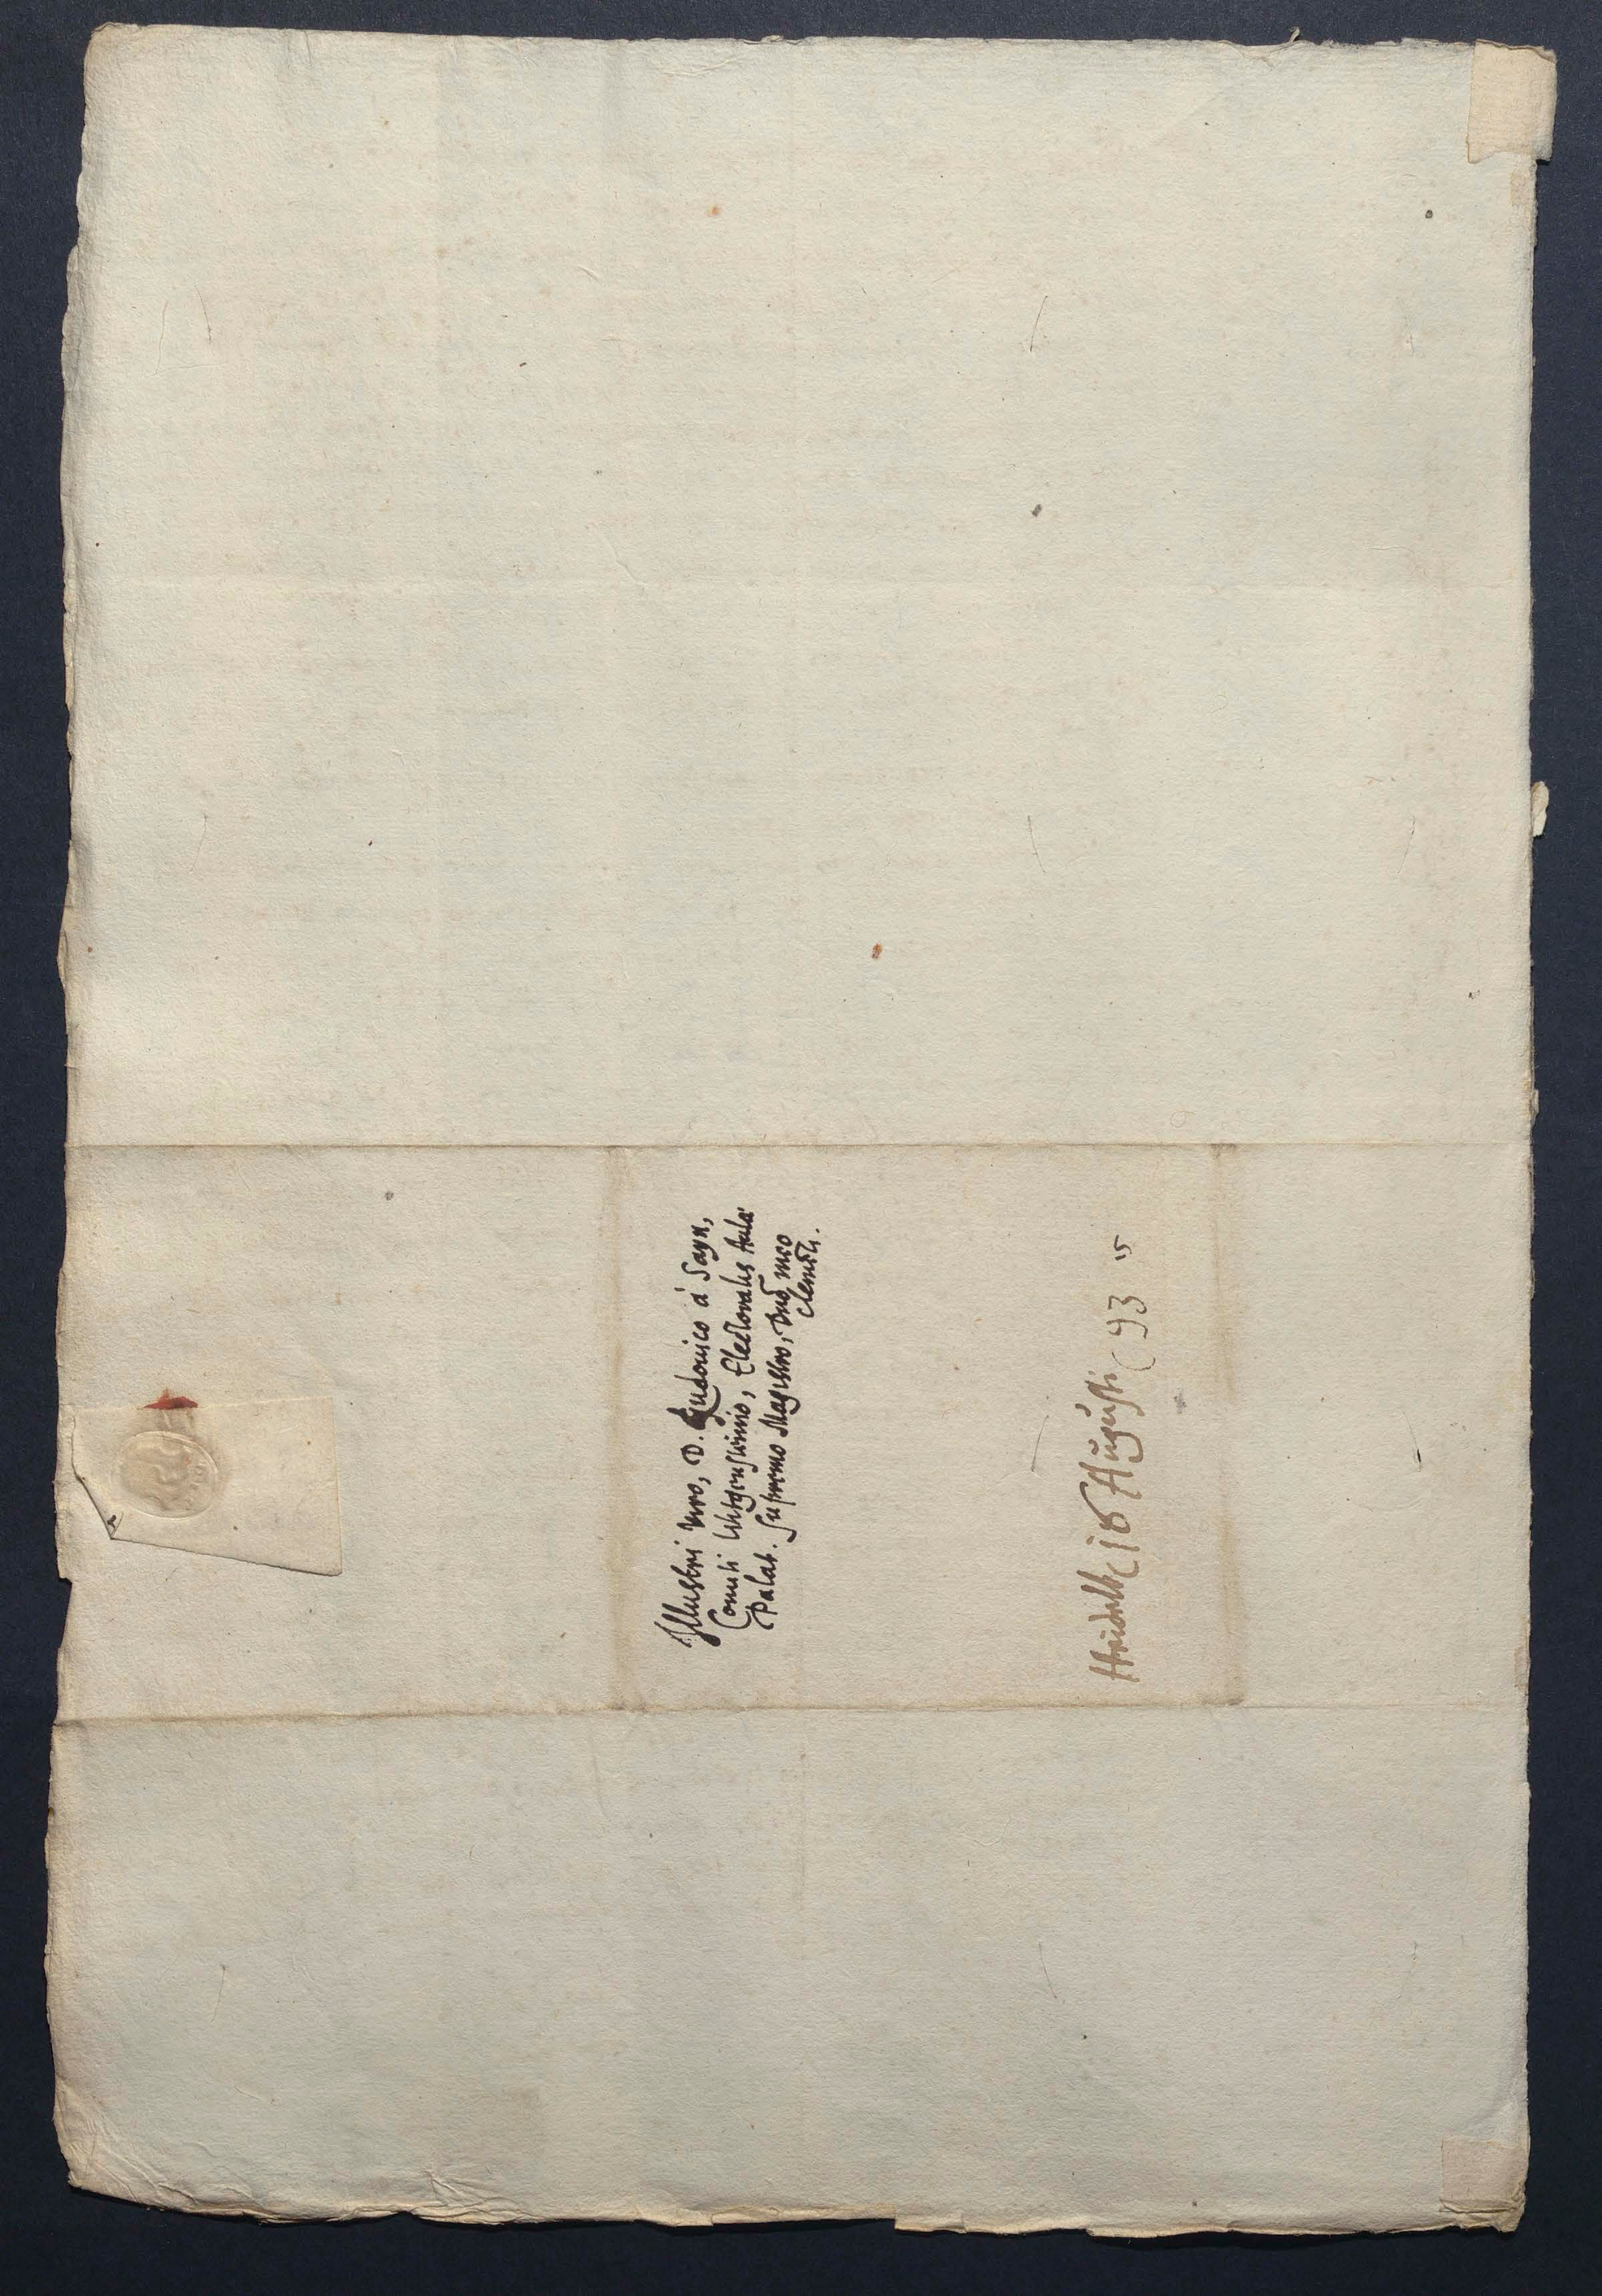 Illustri viro, D. Ludouico à Sayn,
Comiti Witgensteinio, Electoralis Aulæ
Palat. supremo Magistro, Dn̄o meo
clemēti.
Heidelb 18 Augusti 93
15